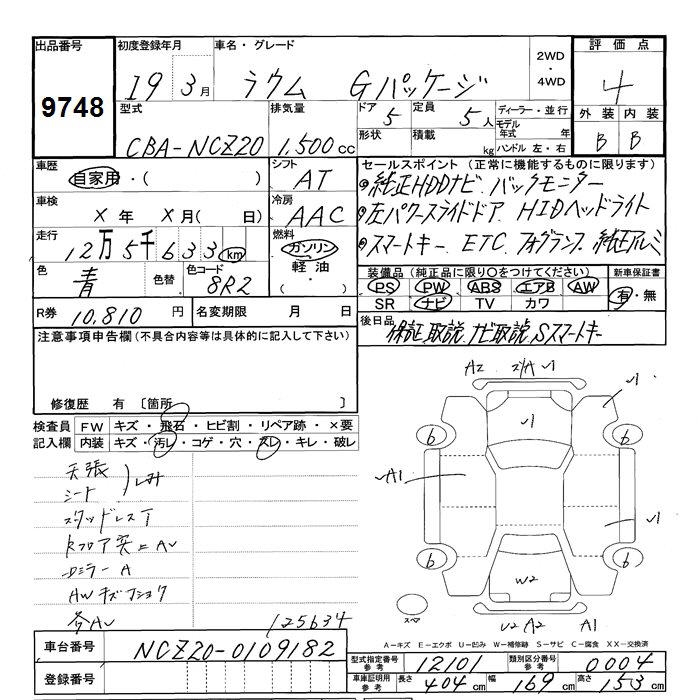 出品番号 初度登録年月 車名・グレード 2WD・4WD 評価点
9748 19 3月 ラウム Gパッケージ 4
型式 排気量 ドア 5 定員 5人 ディーラー・並行 外装 内装
CBA-NCZ20 1,500cc 形状 積載 kg モデル年式 年 ハンドル 左・右 B B
車歴 自家用・( ) シフト AT セールスポイント (正常に機能するものに限ります)
純正HDDナビ、バックモニター
車検 ×年 ×月( 日) 冷房 AAC 左パワースライドドア、HIDヘッドライト
走行 12万5千633km 燃料 ガソリン 軽油・( ) スマートキー、ETC、フォグランプ、純正アルミ
色 青 色替 色コード 8R2 装備品(純正品に限り○をつけてください) 新車保証書
PS PW ABS エアB AW 有・無
SR ナビ TV カワ
R券 10,810円 名変期限 月 日 後日品 保証、取説、ナビ取説、Sスマートキー
注意事項申告欄(不具合内容等は具体的に記入して下さい)
修復歴 有 [箇所 ]
検査員記入欄 FW キズ・飛石・ヒビ割・リペア跡・×要
内装 キズ・汚レ・コゲ・穴・スレ・キレ・破レ
天張
シート
シミ
スタッドレスT
ミラー A
各AU
125634
A2
A1
W2
U2 A2 A1
6 6 6 6
スペア
A=キズ E=エクボ U=凹み W=補修跡 S=サビ C=腐食 XX=交換済
車台番号 NCZ20-0109182
登録番号
型式指定番号 参考 12101 類別区分番号 参考 0004
車庫証明用 参考 長さ 404cm 幅 169cm 高さ 153cm